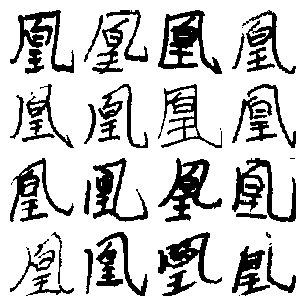 凰凰凰凰
凰凰凰凰
凰凰凰凰
凰凰凰凰